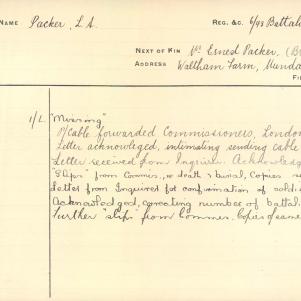 NAME Packer, L A. REG. &c. 6/93 Battali
NEXT OF KIN Mr Ernest Packer, (B
ADDRESS Waltham Farm, Munda
FI
1/L "Missing"
Cable forwarded Commissioners, London
Letter acknowledged, intimating sending cable
Letter received from Inquirer. Acknowledg
"Slips" from Commis., re death & burial, Copies s
Letter from Inquirer for confirmation of soldi
Acknowledged, correcting number of battal
Further "slips" from Commes. Copies of same